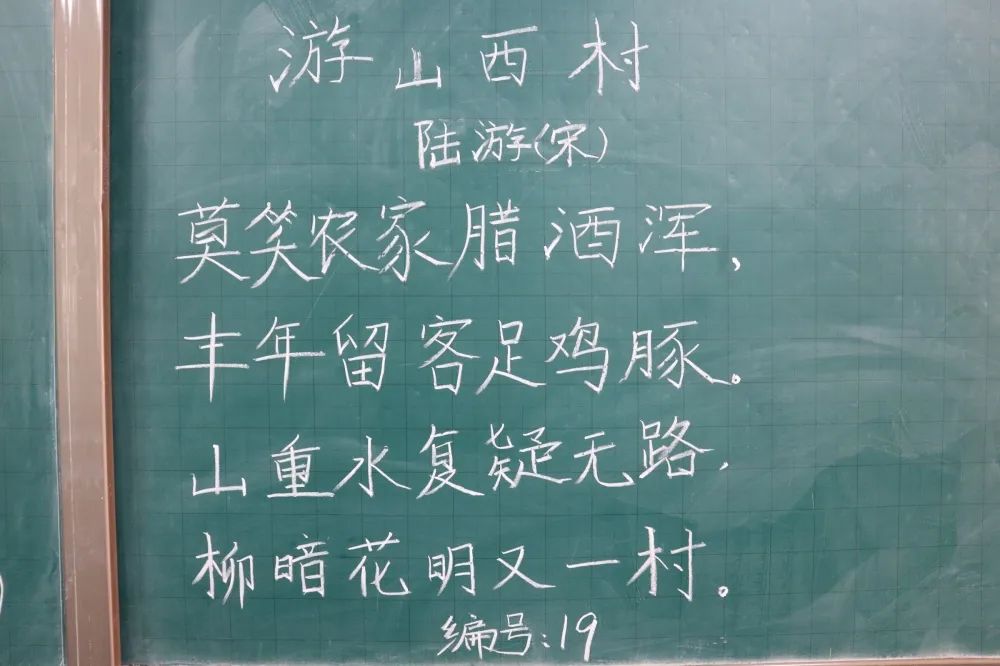 游山西村
陆游(宋)
莫笑农家腊酒浑,
丰年留客足鸡豚。
山重水复疑无路,
柳暗花明又一村。
编号:19